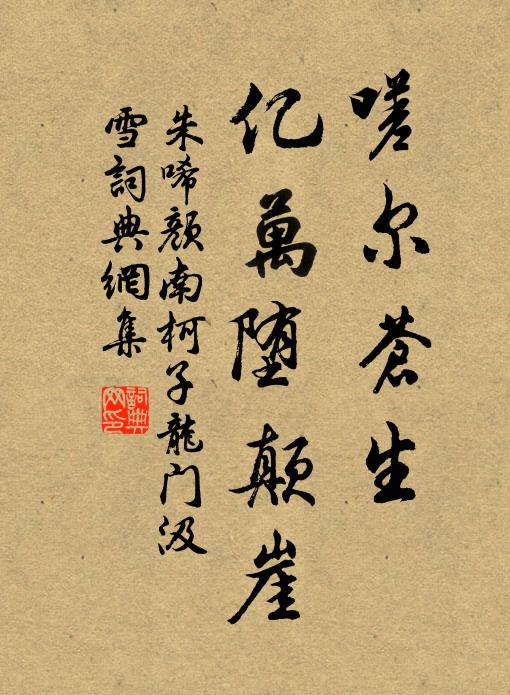 嗟尔苍生
亿萬堕颠崖
朱唏颜南柯子龍门汲
雪詞典網集
詞典网印